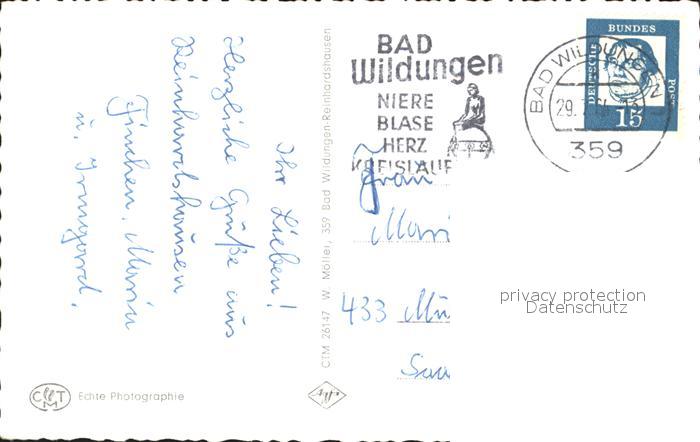 Ihr Lieben!
Herzliche Grüße aus
Reinhardshausen
Finchen, Maria
u. Irmgard.
CTM
Echte Photographie
CTM 26147 W. Möller, 359 Bad Wildungen-Reinhardshausen
Agfa
BAD
Wildungen
NIERE
BLASE
HERZ
KREISLAUF
BAD WILDUNGEN
29.7.
359
DEUTSCHE BUNDESPOST
15
Frau
Mari
433 Mü
privacy protection
Datenschutz